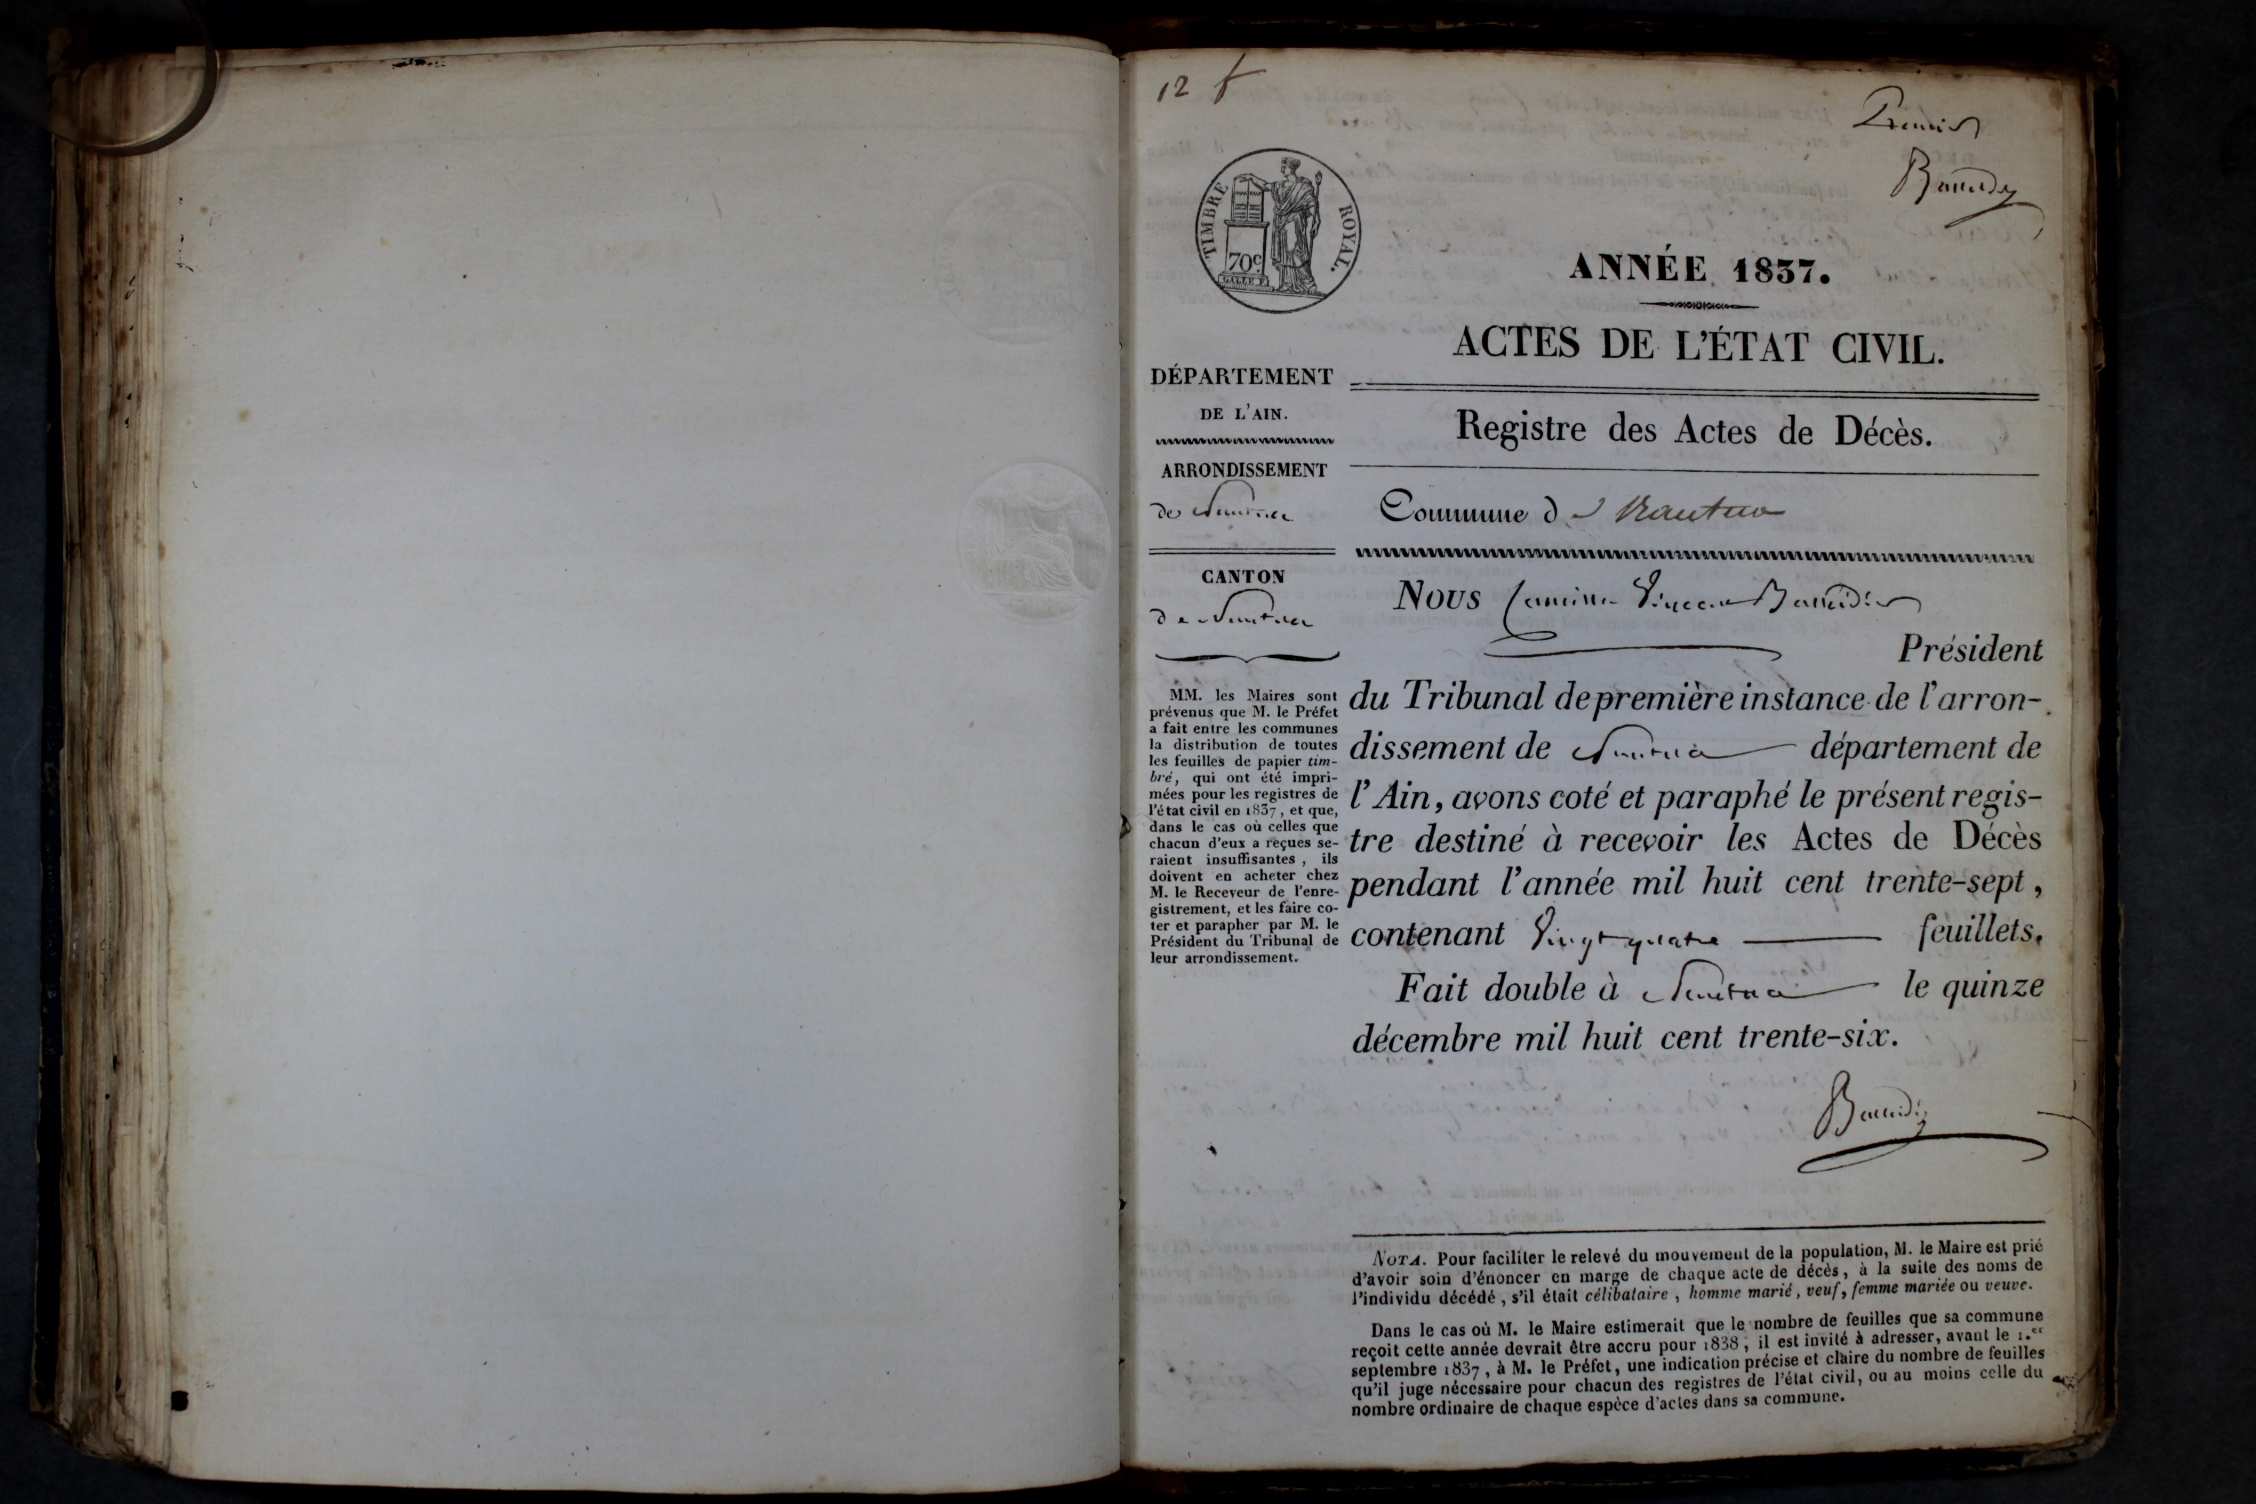 12 f
Premier
TIMBRE ROYAL.
70c
GALLE F.
ANNÉE 1837.
ACTES DE L'ÉTAT CIVIL.
Registre des Actes de Décès.
Commune de Nantua
DÉPARTEMENT
DE L'AIN.
ARRONDISSEMENT
de Nantua
CANTON
de Nantua
MM. les Maires sont
prévenus que M. le Préfet
a fait entre les communes
la distribution de toutes
les feuilles de papier tim-
bré, qui ont été impri-
mées pour les registres de
l'état civil en 1837, et que,
dans le cas où celles que
chacun d'eux a reçues se-
raient insuffisantes, ils
doivent en acheter chez
M. le Receveur de l'enre-
gistrement, et les faire co-
ter et parapher par M. le
Président du Tribunal de
leur arrondissement.
Nous Camille Vincent
Président
du Tribunal de première instance de l'arron-
dissement de Nantua département de
l'Ain, avons coté et paraphé le présent regis-
tre destiné à recevoir les Actes de Décès
pendant l'année mil huit cent trente-sept,
contenant Vingt quatre feuillets.
Fait double à Nantua le quinze
décembre mil huit cent trente-six.
NOTA. Pour faciliter le relevé du mouvement de la population, M. le Maire est prié
d'avoir soin d'énoncer en marge de chaque acte de décès, à la suite des noms de
l'individu décédé, s'il était célibataire, homme marié, veuf, femme mariée ou veuve.
Dans le cas où M. le Maire estimerait que le nombre de feuilles que sa commune
reçoit cette année devrait être accru pour 1838, il est invité à adresser, avant le 1.er
septembre 1837, à M. le Préfet, une indication précise et claire du nombre de feuilles
qu'il juge nécessaire pour chacun des registres de l'état civil, ou au moins celle du
nombre ordinaire de chaque espèce d'actes dans sa commune.